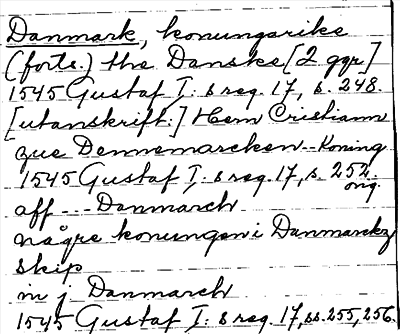 Danmark, konungarike
(forts.) the Danske [2 ggr]
1545 Gustaf I: s reg. 17, s. 248.
[utanskrift:] Hern Cristiann
zue Dennemarcken -- Koning
1545 Gustaf I: s reg. 17, s. 252
orig.
aff --- Danmarch
någre konungen i Danmarckz
skip
in j Danmarch
1545 Gustaf I: s reg. 17, ss. 255, 256.